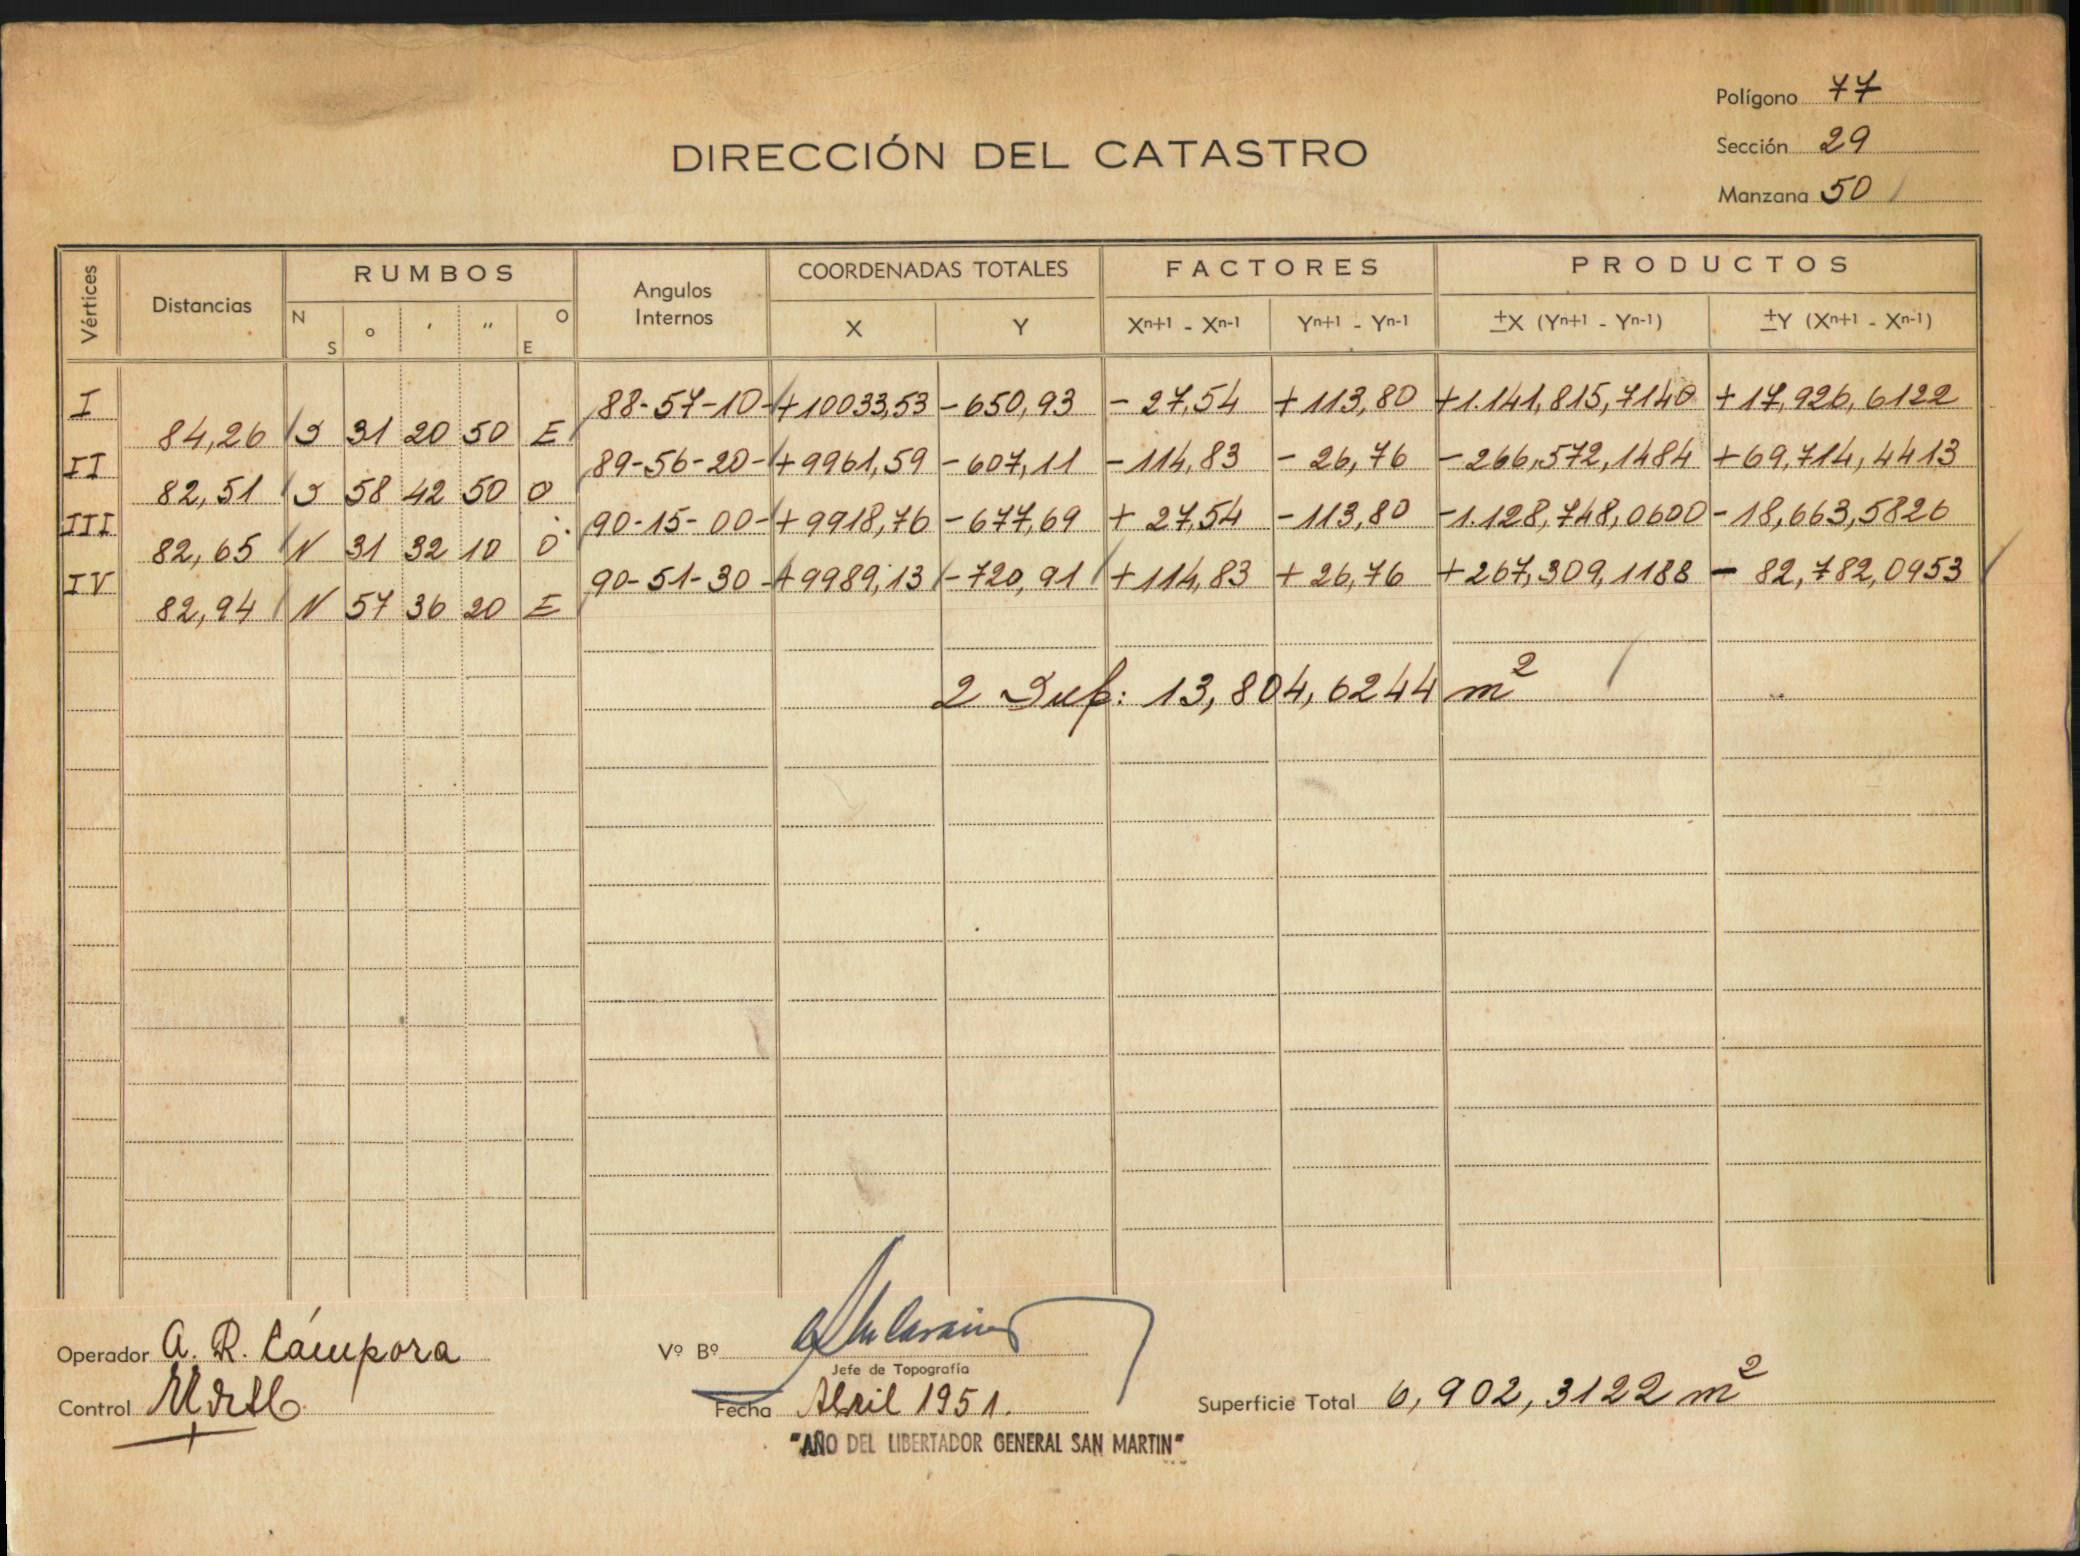 Polígono 77
Sección 29
Manzana 50
DIRECCIÓN DEL CATASTRO
Vértices Distancias RUMBOS Angulos Internos COORDENADAS TOTALES FACTORES PRODUCTOS
N S o ' " O E X Y Xn+1 - Xn-1 Yn+1 - Yn-1 ±X (Yn+1 - Yn-1) ±Y (Xn+1 - Xn-1)
I 88-57-10 +10033,53 -650,93 - 27,54 + 113,80 +1.141,815,7140 + 17,926,6122
84,26 S 31 20 50 E
II 89-56-20 +9961,59 -607,11 -114,83 - 26,76 -266,572,1484 +69,714,4413
82,51 S 58 42 50 O
III 90-15-00 +9918,76 -677,69 + 27,54 -113,80 -1.128,748,0600 -18,663,5826
82,65 N 31 32 10 O
IV 90-51-30 +9989,13 -720,91 +114,83 + 26,76 +267,309,1188 - 82,782,0953
82,94 N 57 36 20 E
2 Sup: 13,804,6244 m2
Operador A. R. Cámpora
Vº Bº
Jefe de Topografía
Control
Fecha Abril 1951.
Superficie Total 6,902,3122 m2
"AÑO DEL LIBERTADOR GENERAL SAN MARTIN"